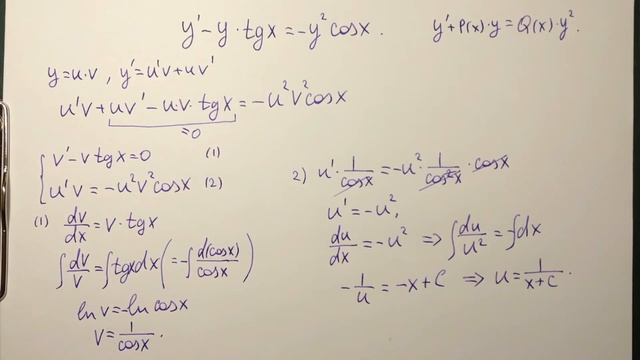 y' - y · tgx = -y² cosx.
y' + P(x)·y = Q(x)·y².
y = u·v, y' = u'v + uv'
u'v + uv' - u·v·tgx = -u²v²cosx
=0
{ v' - v tgx = 0 (1)
u'v = -u²v²cosx (2)
(1) dv/dx = v · tgx
∫ dv/v = ∫ tgx dx (= -∫ d(cosx)/cosx)
ln v = -ln cosx
v = 1/cosx.
2) u' · 1/cosx = -u² · 1/cos²x · cosx
u' = -u²,
du/dx = -u² ⇒ ∫ du/u² = -∫ dx
-1/u = -x + C ⇒ u = 1/(x+C).